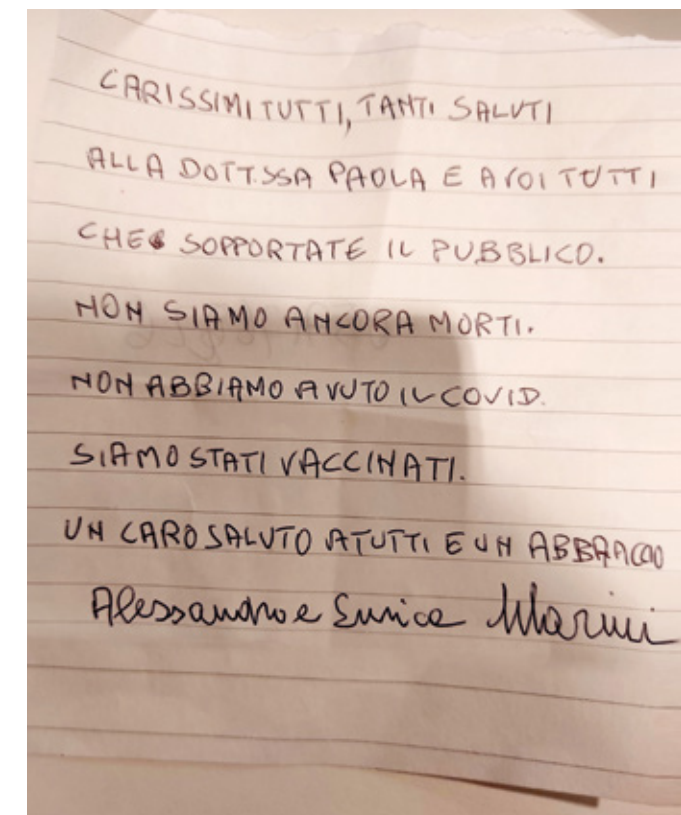 CARISSIMI TUTTI, TANTI SALUTI
ALLA DOTT.SSA PAOLA E A VOI TUTTI
CHE SOPPORTATE IL PUBBLICO.
NON SIAMO ANCORA MORTI.
NON ABBIAMO AVUTO IL COVID.
SIAMO STATI VACCINATI.
UN CARO SALUTO A TUTTI E UN ABBRACCIO
Alessandro e Enrica Marini